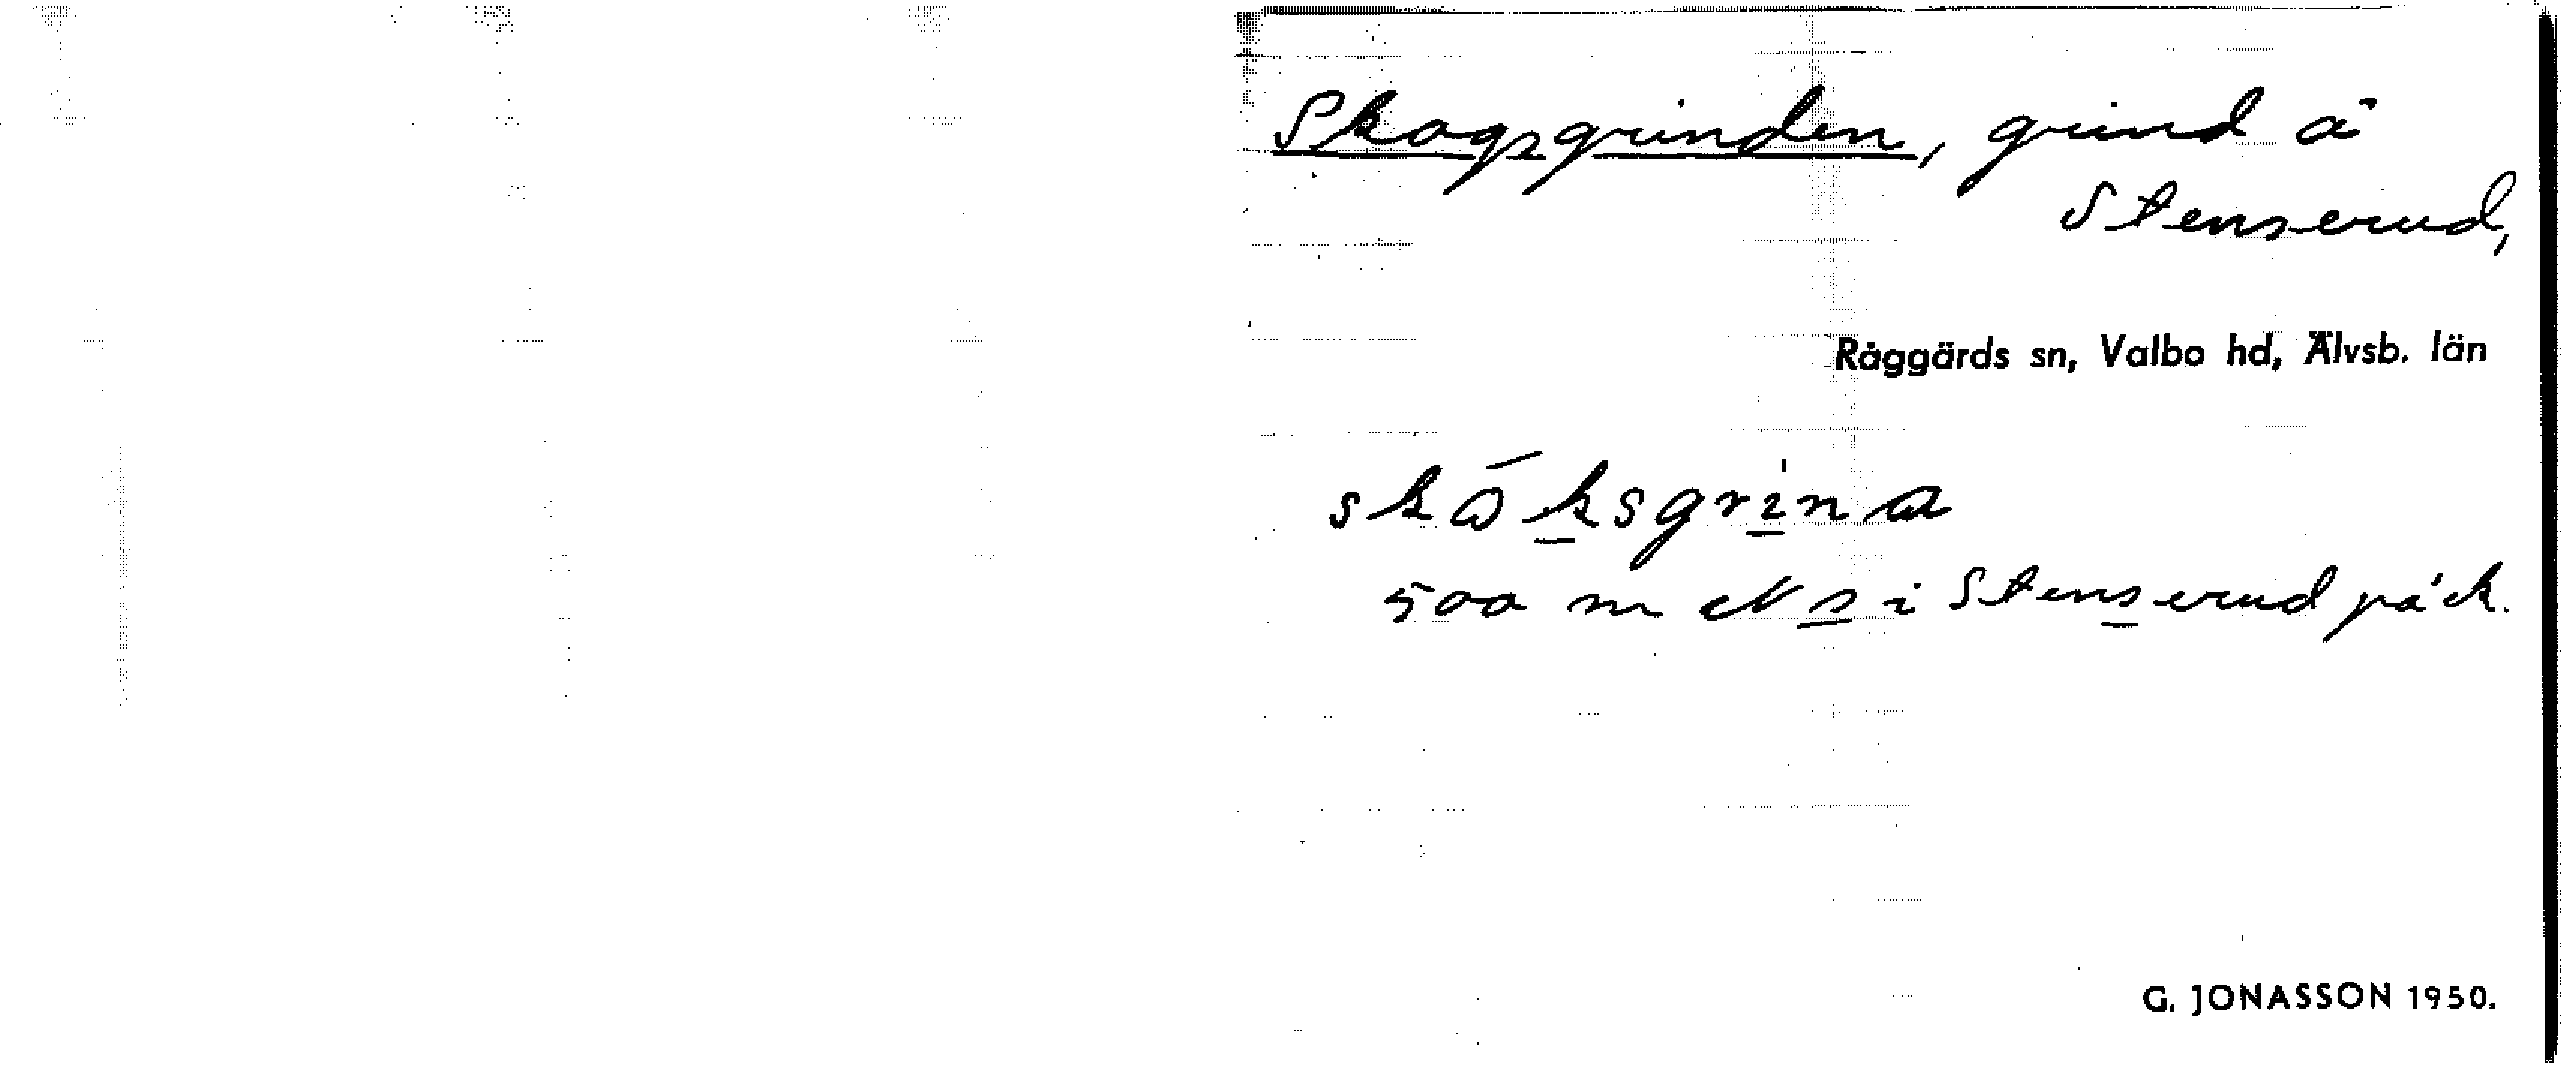 Skogsgrinden, grind å
Stenserud,
Råggärds sn, Valbo hd, Älvsb. län
skōksgrina
500 m N s i Stenserud på ek.
G. JONASSON 1950.